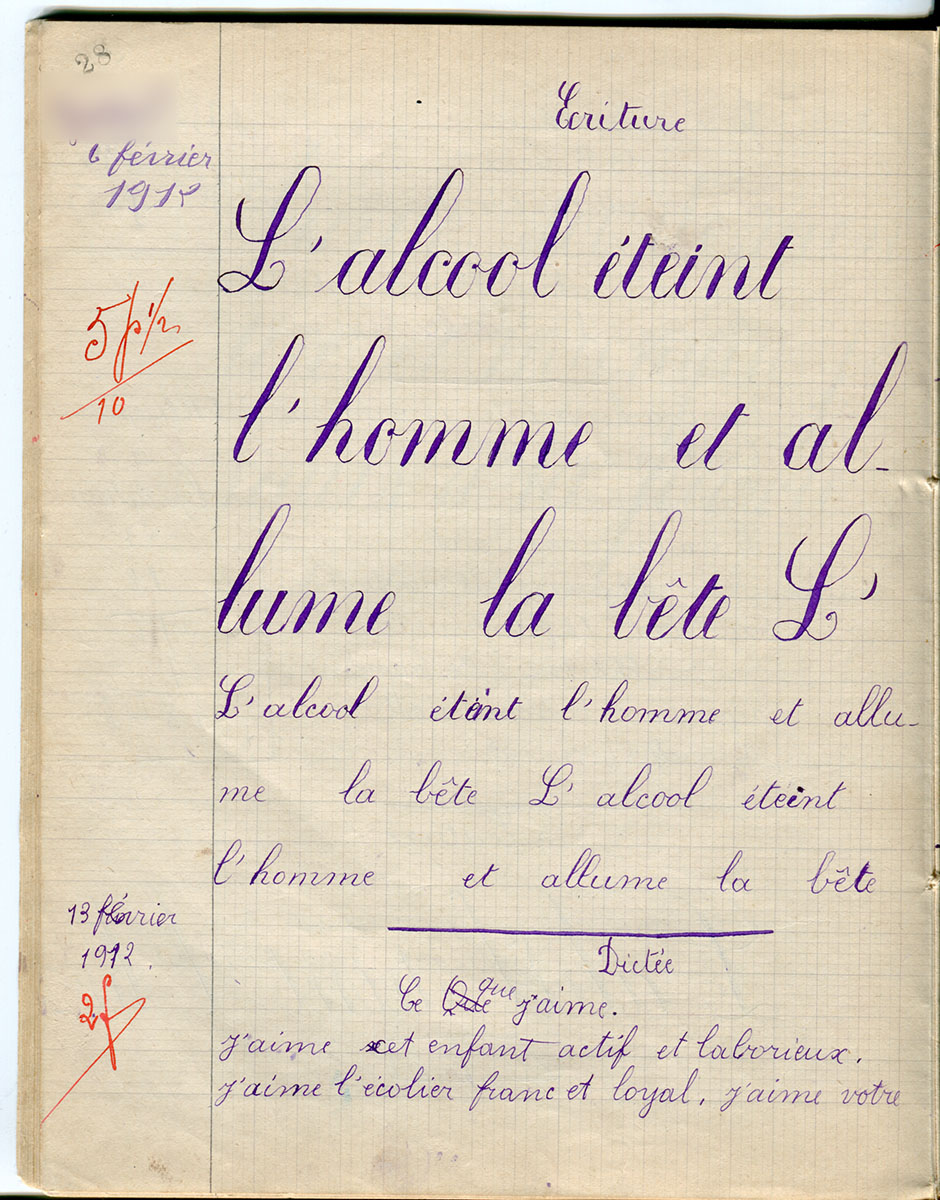 28
6 février
1912
Ecriture
L'alcool éteint
5 p 1/2
10
l'homme et al-
lume la bête L'
L'alcool éteint l'homme et allu-
me la bête L'alcool éteint
l'homme et allume la bête
13 février
1912.
Dictée
2f
Ce Que que j'aime.
J'aime cet enfant actif et laborieux.
J'aime l'écolier franc et loyal. J'aime votre